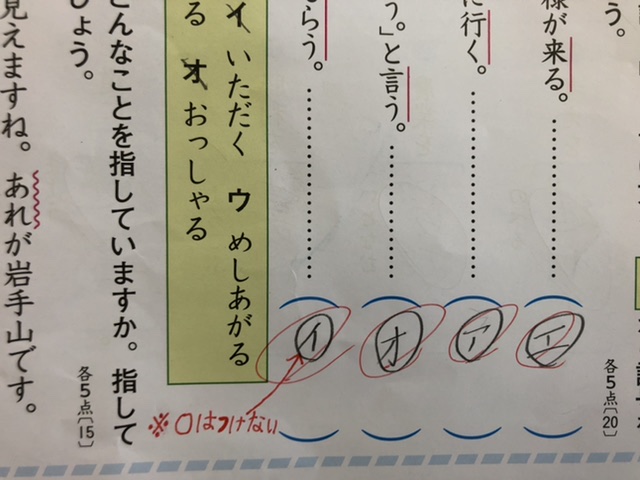 う。
各5点〔20〕
様が来る。
エ
に行く。
ア
う。」と言う。
オ
らう。
イ
イ いただく ウ めしあがる
る オ おっしゃる
※〇はつけない
こんなことを指していますか。指して
しょう。
各5点〔15〕
見えますね。あれが岩手山です。